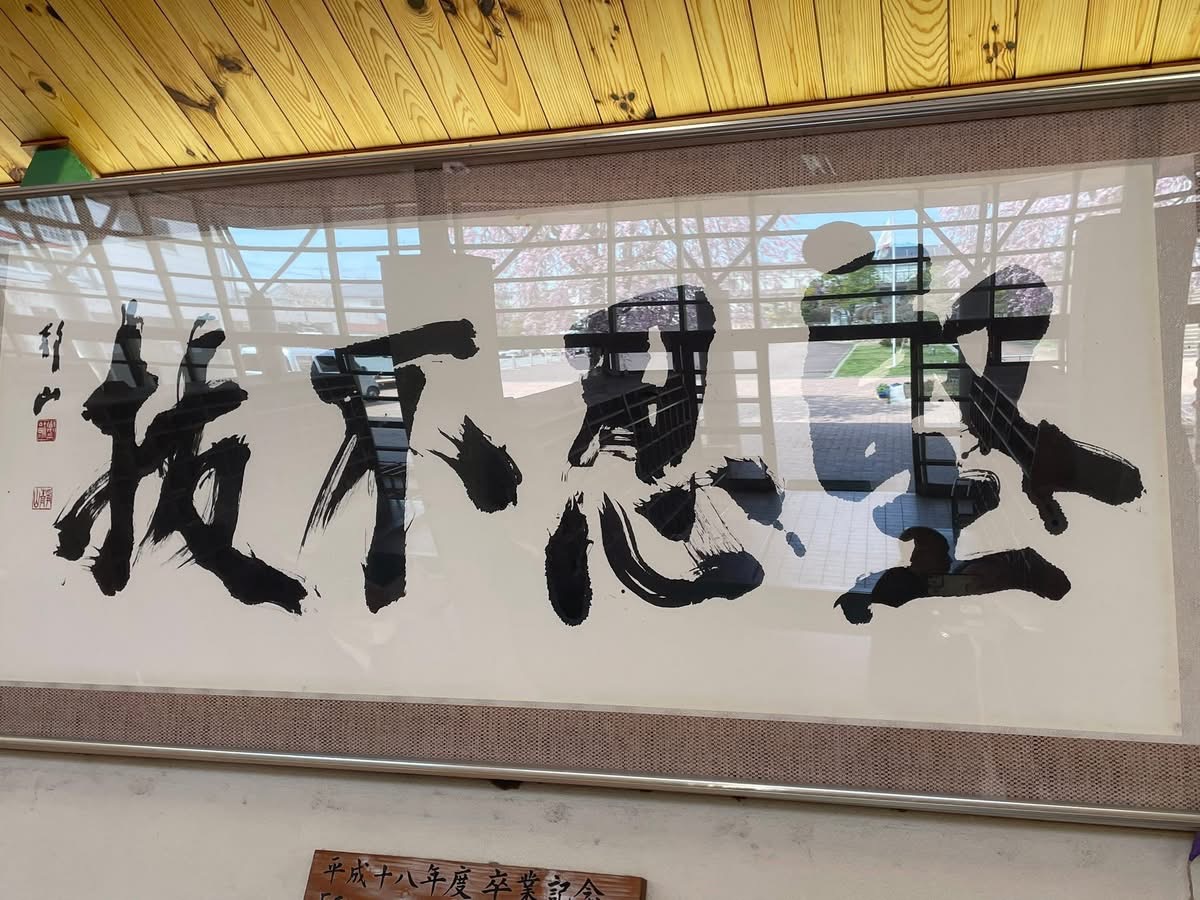 堅忍不抜
平成十八年度 卒業記念